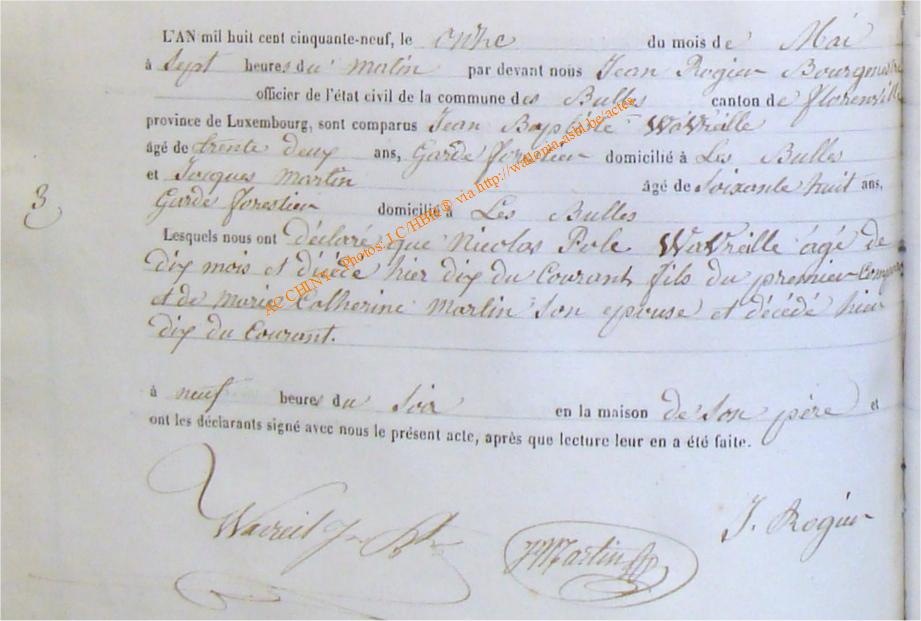 L'AN mil huit cent cinquante-neuf, le onze du mois de Mai
à Sept heures du matin par devant nous Jean Rogier Bourgmestre
officier de l'état civil de la commune des Bulles canton de florenville
province de Luxembourg, sont comparus Jean Baptiste WaVreille
âgé de trente deux ans, Garde forestier domicilié à Les Bulles
et Jacques Martin âgé de Soixante huit ans,
3 Garde forestier domicilié à Les Bulles
Lesquels nous ont déclaré que Nicolas Pole WaVreille agé de
dix mois et décédé hier dix du Courant fils du premier Compar
et de Marie Catherine Martin Son epouse et décédé hier
dix du Courant.
à neuf heures du Soir en la maison de Son père et
ont les déclarants signé avec nous le présent acte, après que lecture leur en a été faite.
Wavreil J Bte
JMartin
J. Rogier
AC CHINY - Photos: J.C/HBR® via http://wallonia.asbl.be/actes